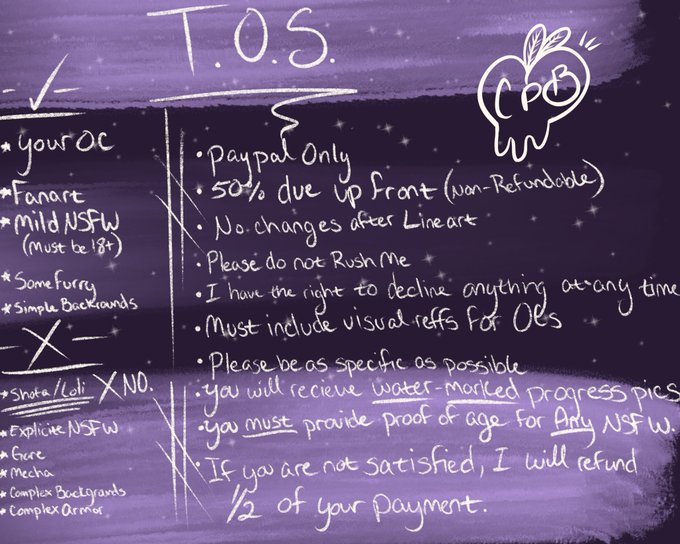 T.O.S.
CPB
* your OC
* Fanart
* Mild NSFW
(Must be 18+)
* Some furry
* Simple Backgrounds
X
* Shota/Loli X NO.
* Explicite NSFW
* Gore
* Mecha
* Complex Backgrands
* Complex Armor
• Paypal Only
• 50% due up front (Non-Refundable)
• No changes after Lineart
• Please do not Rush Me
• I have the right to decline anything at any time
• Must include visual reffs for OCs
• Please be as specific as possible
• you will recieve water-marked progress pics
• you must provide proof of age for Any NSFW.
• If you are not satisfied, I will refund
1/2 of your payment.